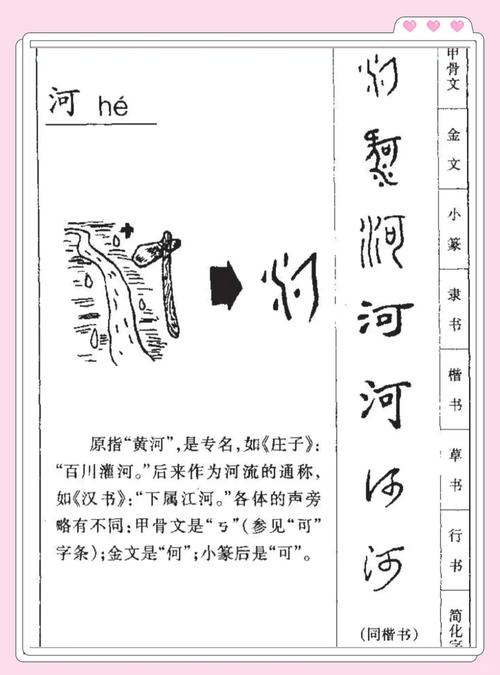 河 hé
原指“黄河”,是专名,如《庄子》:
“百川灌河。”后来作为河流的通称,
如《汉书》:“下属江河。”各体的声旁
略有不同:甲骨文是“ㄎ”(参见“可”
字条);金文是“何”;小篆后是“可”。
河
河
河
河
(同楷书)
甲骨文
金文
小篆
隶书
楷书
草书
行书
简化字